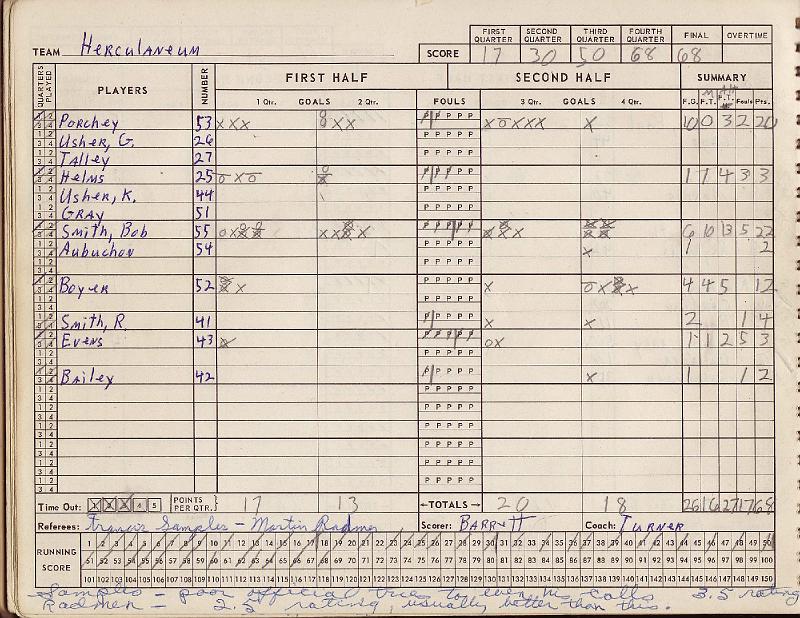 FIRST QUARTER SECOND QUARTER THIRD QUARTER FOURTH QUARTER FINAL OVERTIME
TEAM Herculaneum SCORE 17 30 50 68 68
QUARTERS PLAYED PLAYERS NUMBER FIRST HALF SECOND HALF SUMMARY
1 Qtr. GOALS 2 Qtr. FOULS 3 Qtr. GOALS 4 Qtr. F.G. F.T. F.T. Fouls Pts.
Porchey 53 xxx xx P P P P P x xxx x 10 0 3 2 20
Usher, G. 26
Talley 27
Helms 25 o x o P P P P P 1 1 4 3 3
Usher, K. 44
Gray 51
Smith, Bob 55 P P P P P 6 10 13 5 22
Aubuchon 54 x 1 2
Boyer 52 x 4 4 5 12
Smith, R. 41 x x 2 1 4
Evens 43 ox 1 1 2 5 3
Bailey 42 x 1 1 2
Time Out: 1 2 3 4 5 POINTS PER QTR. 17 13 ←TOTALS→ 20 18 26 16 27 17 68
Referees: Francis Samples - Martin Radmer Scorer: Barrett Coach: Turner
1 2 3 4 5 6 7 8 9 10 11 12 13 14 15 16 17 18 19 20 21 22 23 24 25 26 27 28 29 30 31 32 33 34 35 36 37 38 39 40 41 42 43 44 45 46 47 48 49 50
RUNNING SCORE 51 52 53 54 55 56 57 58 59 60 61 62 63 64 65 66 67 68 69 70 71 72 73 74 75 76 77 78 79 80 81 82 83 84 85 86 87 88 89 90 91 92 93 94 95 96 97 98 99 100
101 102 103 104 105 106 107 108 109 110 111 112 113 114 115 116 117 118 119 120 121 122 123 124 125 126 127 128 129 130 131 132 133 134 135 136 137 138 139 140 141 142 143 144 145 146 147 148 149 150
Samples - poor official tries to even his calls 3.5 rating
Radmer - 2.5 rating, usually better than this.